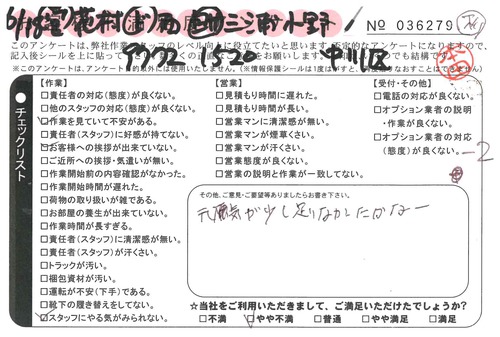 6/18(金) 花村(浦) 三浦 小野
№ 036279
このアンケートは、弊社作業スタッフのレベル向上に役立てたいと思います。否定的なアンケートになりますので、
記入後シールを上に貼って
でも結構です
※このアンケートは、アンケート目的以外には使用いたしません。(※情報保護シールは1度はがすと、再度貼りなおすことはできません)
1520 中川区
チェックリスト
【作業】
□責任者の対応(態度)が良くない。
□他のスタッフの対応(態度)が良くない。
□作業を見ていて不安がある。
□責任者(スタッフ)に好感が持てない。
□お客様への挨拶が出来ていない。
□ご近所への挨拶・気遣いが無い。
□作業開始前の内容確認がなかった。
□作業開始時間が遅れた。
□荷物の取り扱いが雑である。
□お部屋の養生が出来ていない。
□作業時間が長すぎる。
□責任者(スタッフ)に清潔感が無い。
□責任者(スタッフ)が汗くさい。
□トラックが汚い。
□梱包資材が汚い。
□運転が不安(下手)である。
□靴下の履き替えをしてない。
□スタッフにやる気がみられない。
【営業】
□見積もり時間に遅れた。
□見積もり時間が長い。
□営業マンに清潔感が無い。
□営業マンが煙草くさい。
□営業マンが汗くさい。
□営業態度が良くない。
□営業の説明と作業が一致してない。
【受付・その他】
□電話の対応が良くない。
□オプション業者の説明
・作業が良くない。
□オプション業者の対応
(態度)が良くない。
-2
その他、ご意見・ご要望等ありましたらお書き下さい。
元気が少し足りなかったかなー
☆当社をご利用いただきまして、ご満足いただけたでしょうか?
□不満 □やや不満 □普通 □やや満足 □満足